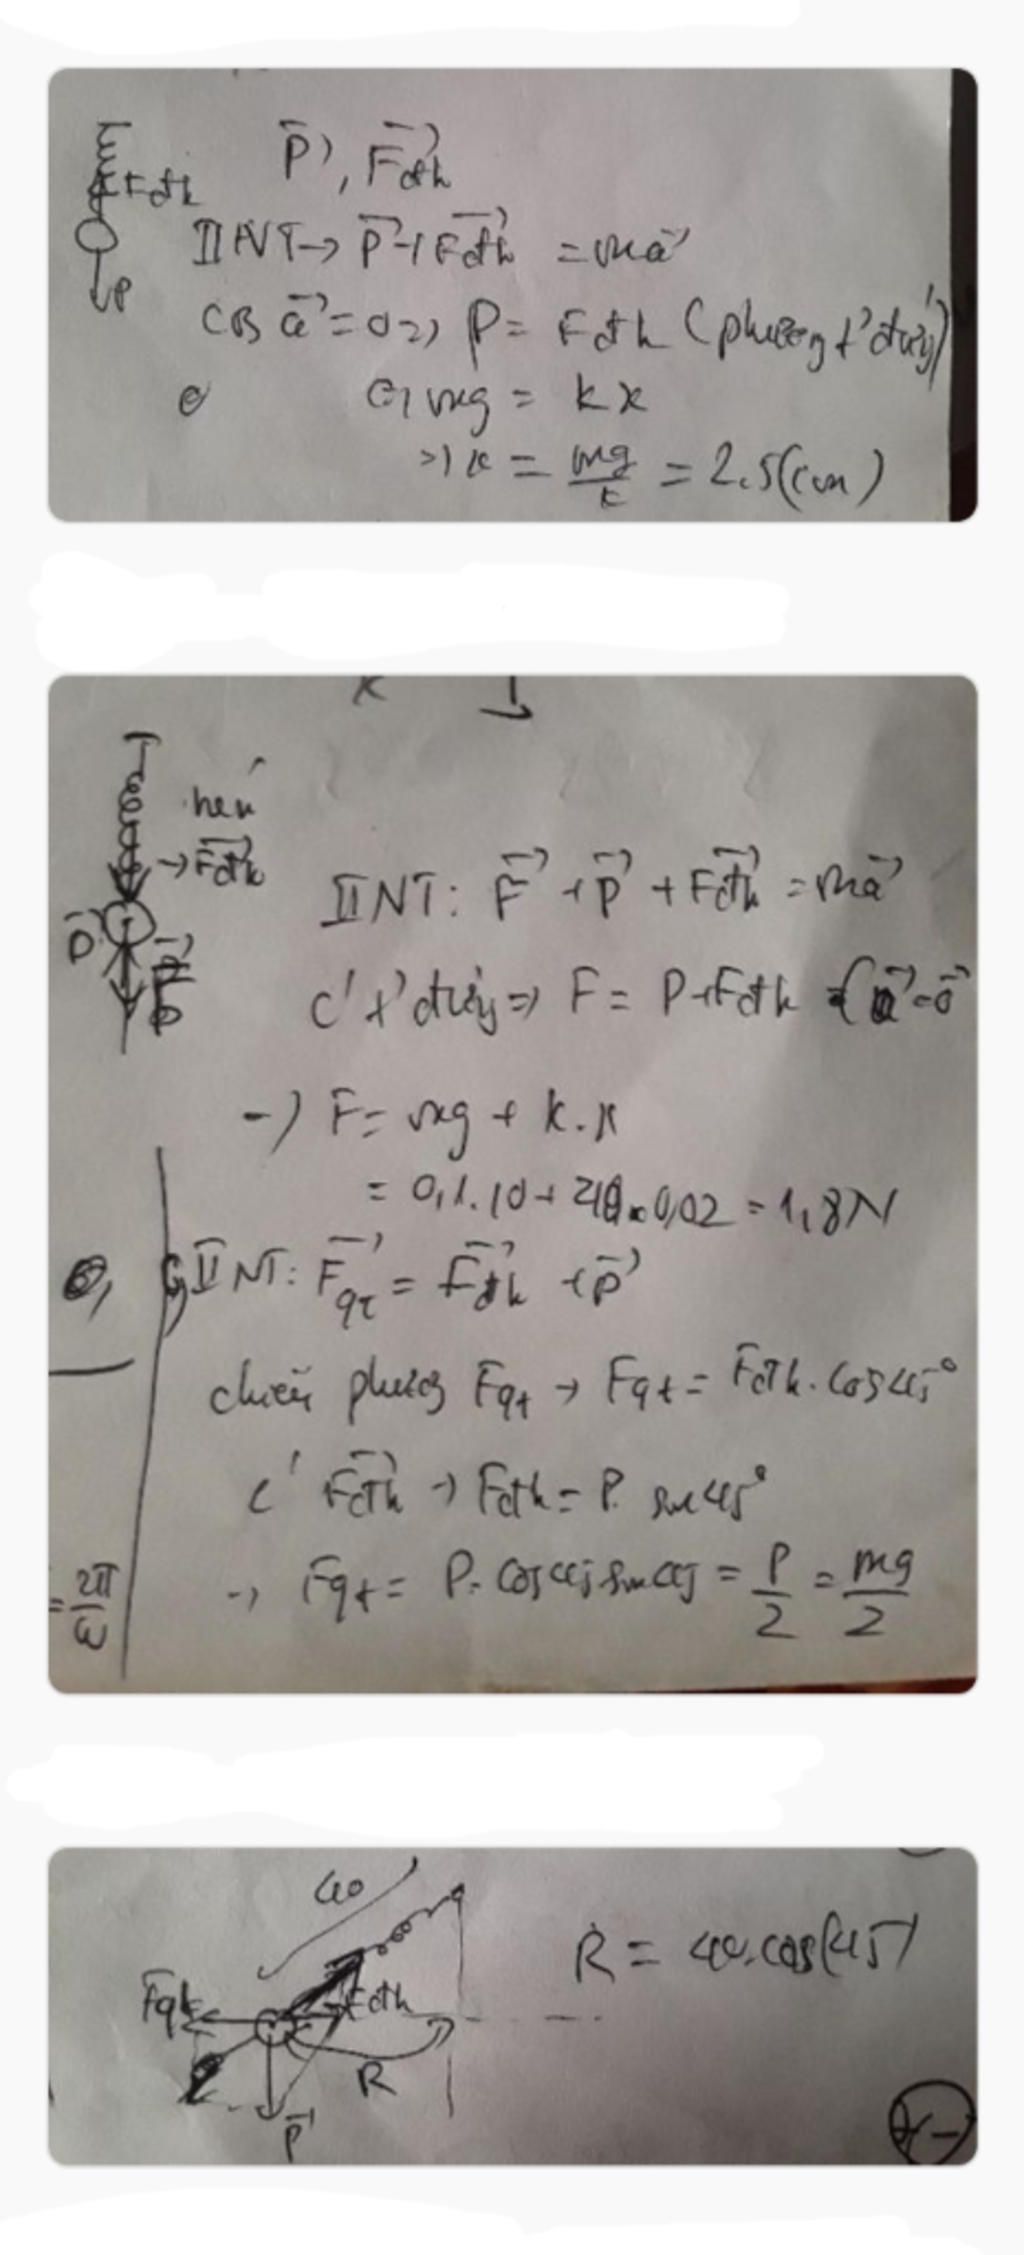 Fđh
P
P, Fđh
II NT → P + Fđh = ma
CB a = 0 => P = Fđh (phương t' đứng)
mg = kx
=> x = mg/k = 2.5(cm)
k
nén
→ Fđh
P
II NT: F + P + Fđh = ma
c' t' đứng => F = P + Fđh (a = 0
→ F = mg + k.x
= 0,1.10 + 40.0,02 = 1,8N
II NT: Fqt = Fđh + P
chiếu phương Fqt → Fqt = Fđh.cos45°
c' Fđh → Fđh = P. sin45°
→ Fqt = P. cos45 sin45 = P/2 = mg/2
= 2π/ω
40
Fqt
Fđh
R
P
R = 40.cos(45)